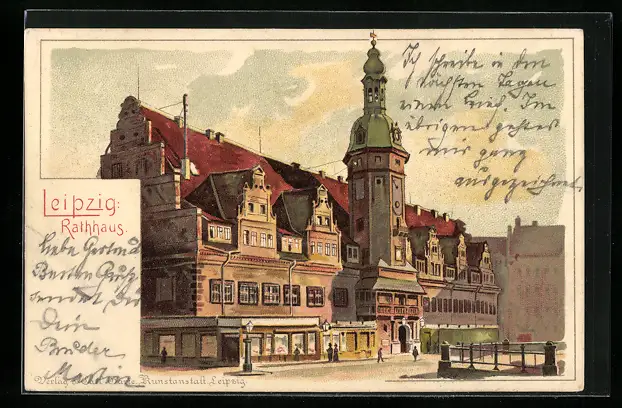 Leipzig:
Rathhaus.
Liebe Gertrud
Besten Gruß
sendet Dir
Dein
Bruder
Martin
Ich schreibe in den
nächsten Tagen
einen Brief. Im
übrigen geht es
mir ganz
ausgezeichnet.
Verlag Kunstanstalt, Leipzig.